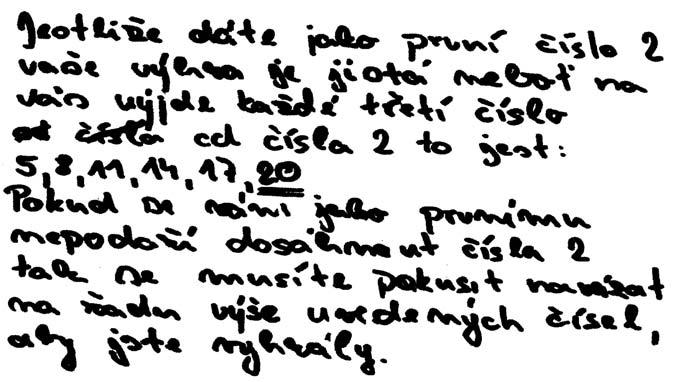 Jestliže dáte jako první číslo 2
vaše výhra je jistá neboť na
vás vyjde každé třetí číslo
od čísla 2 to jest:
5, 8, 11, 14, 17, 20
Pokud se vámi jako prvnímu
nepodaří dosáhnout čísla 2
tak se musíte pokusit navázat
na řadu výše uvedených čísel,
aby jste vyhrály.